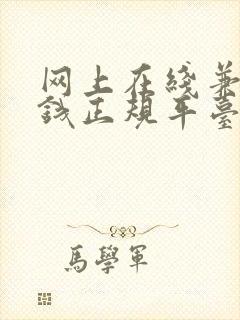 网上在线兼
钱正规平臺
馬學軍